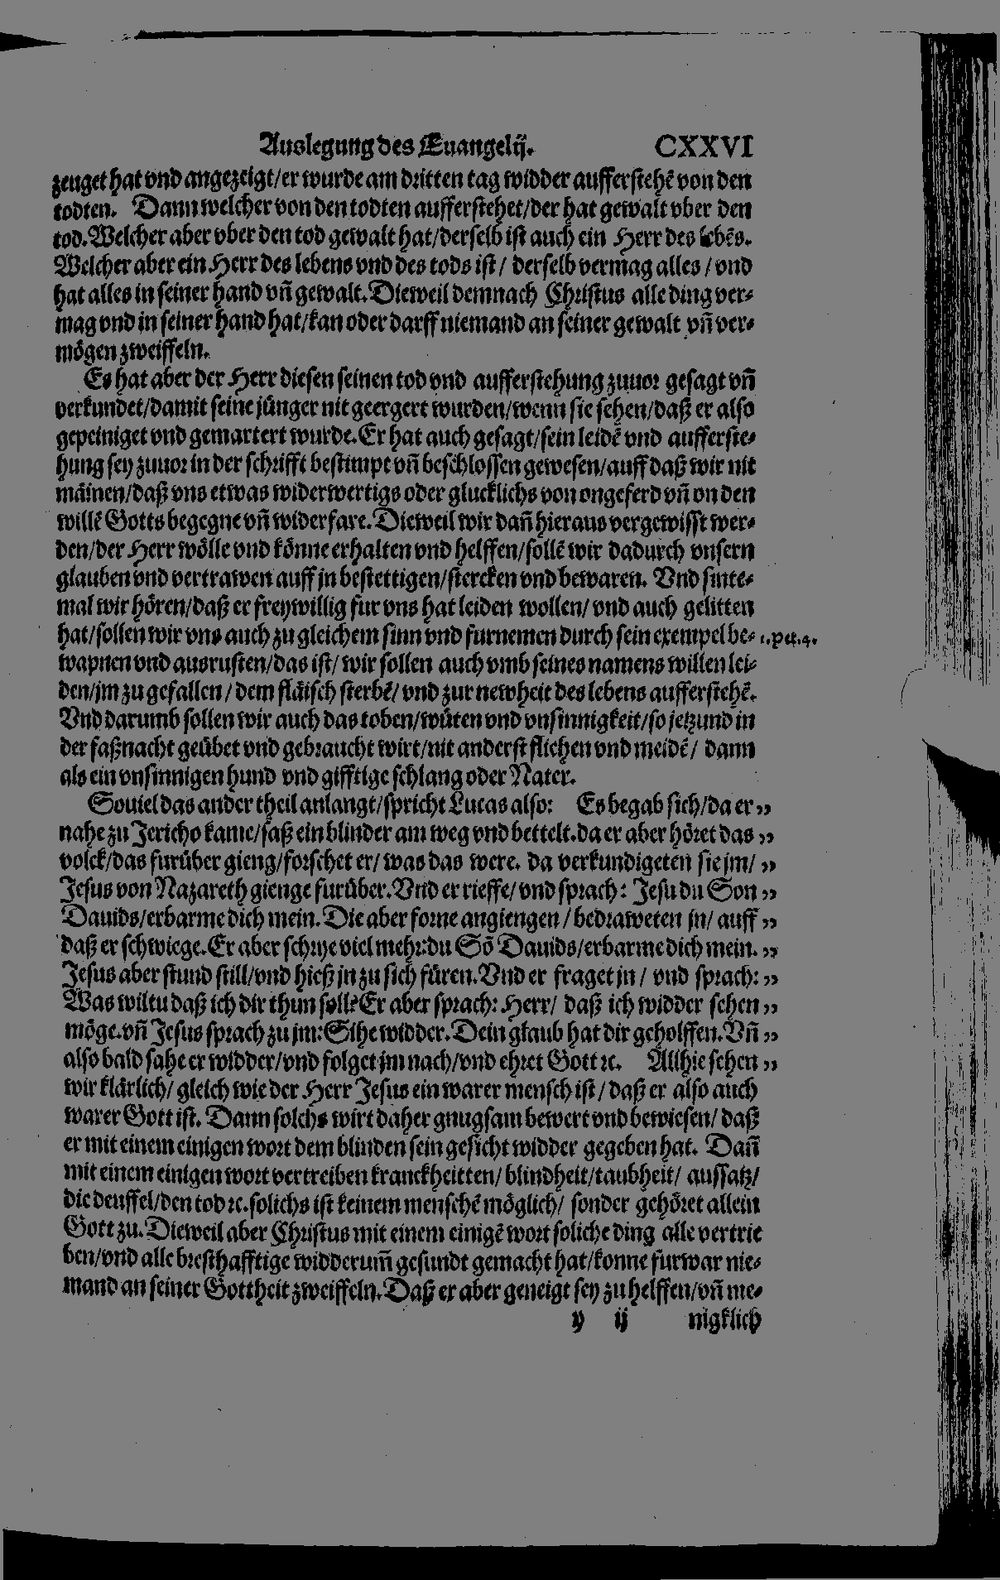 Auslegung des Euangelij. CXXVI
zeuget hat vnd angezeigt/er wurde am dritten tag widder aufferstehẽ von den
todten. Dann welcher von den todten aufferstehet/der hat gewalt vber den
tod. Welcher aber vber den tod gewalt hat/derselb ist auch ein Herr des lebẽs.
Welcher aber ein Herr des lebens vnd des tods ist/ derselb vermag alles/ vnd
hat alles in seiner hand vñ gewalt. Dieweil demnach Christus alle ding ver-
mag vnd in seiner hand hat/kan oder darff niemand an seiner gewalt vñ ver-
mögen zweiffeln.
Es hat aber der Herr diesen seinen tod vnd aufferstehung zuuor gesagt vñ
verkundet/damit seine jünger nit geergert wurden/wenn sie sehen/daß er also
gepeiniget vnd gemartert wurde. Er hat auch gesagt/sein leidẽ vnd aufferste-
hung sey zuuor in der schrifft bestimpt vñ beschlossen gewesen/auff daß wir nit
mäinen/daß vns etwas widerwertigs oder glucklichs von ongeferd vñ on den
willẽ Gotts begegne vñ widerfare. Dieweil wir dañ hieraus vergewisst wer-
den/der Herr wölle vnd könne erhalten vnd helffen/sollẽ wir dadurch vnsern
glauben vnd vertrawen auff jn bestettigen/stercken vnd bewaren. Vnd sinte-
mal wir hören/daß er freywillig fur vns hat leiden wollen/ vnd auch gelitten
hat/sollen wir vns auch zu gleichem sinn vnd furnemen durch sein exempel be- 1.pet.4.
wapnen vnd ausrusten/das ist/ wir sollen auch vmb seines namens willen lei-
den/jm zu gefallen/ dem fläisch sterbẽ/ vnd zur newheit des lebens aufferstehẽ.
Vnd darumb sollen wir auch das toben/wüten vnd vnsinnigkeit/so jetzund in
der faßnacht geübet vnd gebraucht wirt/nit anderst flichen vnd meidẽ/ dann
als ein vnsinnigen hund vnd gifftige schlang oder Nater.
Souiel das ander theil anlangt/spricht Lucas also: Es begab sich/da er „
nahe zu Jericho kame/saß ein blinder am weg vnd bettelt. da er aber höret das „
volck/das furüber gieng/forschet er/ was das were. da verkundigeten sie jm/ „
Jesus von Nazareth gienge furüber. Vnd er rieffe/ vnd sprach: Jesu du Son „
Dauids/erbarme dich mein. Die aber forne angiengen/ bedraweten jn/ auff „
daß er schwiege. Er aber schrye viel mehr: du Sõ Dauids/erbarme dich mein. „
Jesus aber stund still/vnd hieß jn zu sich füren. Vnd er fraget jn/ vnd sprach: „
Was wiltu daß ich dir thun soll? Er aber sprach: Herr/ daß ich widder sehen „
möge. vñ Jesus sprach zu jm: Sihe widder. Dein glaub hat dir geholffen. Vñ „
also bald sahe er widder/vnd folget jm nach/vnd ehret Gott ꝛc. Allhie sehen „
wir klärlich/ gleich wie der Herr Jesus ein warer mensch ist/ daß er also auch
warer Gott ist. Dann solchs wirt daher gnugsam bewert vnd bewiesen/ daß
er mit einem einigen wort dem blinden sein gesicht widder gegeben hat. Dañ
mit einem einigen wort vertreiben kranckheitten/ blindheit/taubheit/ aussatz/
die deuffel/den tod ꝛc. solichs ist keinem menschẽ möglich/ sonder gehöret allein
Gott zu. Dieweil aber Christus mit einem einigẽ wort soliche ding alle vertrie
ben/vnd alle bresthafftige widderum̃ gesundt gemacht hat/konne furwar nie-
mand an seiner Gottheit zweiffeln. Daß er aber geneigt sey zu helffen/vñ me-
y ij nigklich